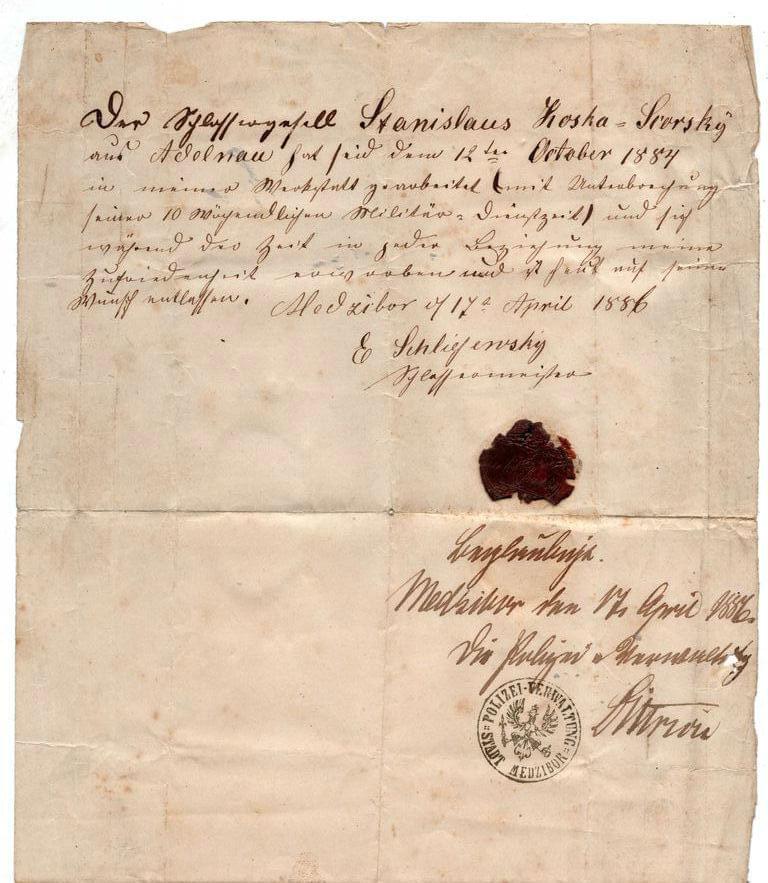 Der Schlossergesell Stanislaus Koska-Scorsky
aus Adelnau hat seid dem 12ten October 1884
in meiner Werkstatt gearbeitet (mit Unterbrechung
seiner 10 Wöchendlichen Militär-Dienstzeit) und sich
während der Zeit in jeder Beziehung meine
Zufriedenheit erworben und ist heut auf seinen
Wunsch entlassen. Medzibor d 17t April 1886
E Schliejewsky
Schlossermeister
Beglaubigt.
Medzibor den 17. April 1886.
Die Polizei-Verwaltung
POLIZEI-VERWALTUNG
STADT MEDZIBOR